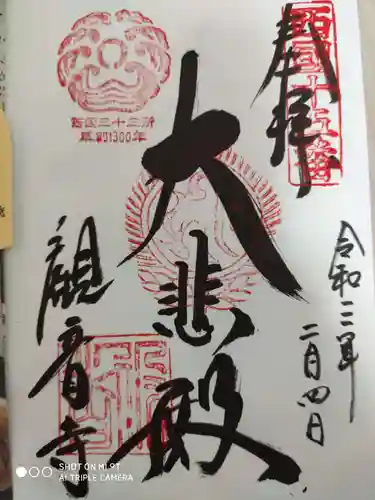 西国十五番
奉拝
令和三年
二月四日
大悲殿
西国三十三所
草創1300年
観音寺
SHOT ON MI 9T
AI TRIPLE CAMERA